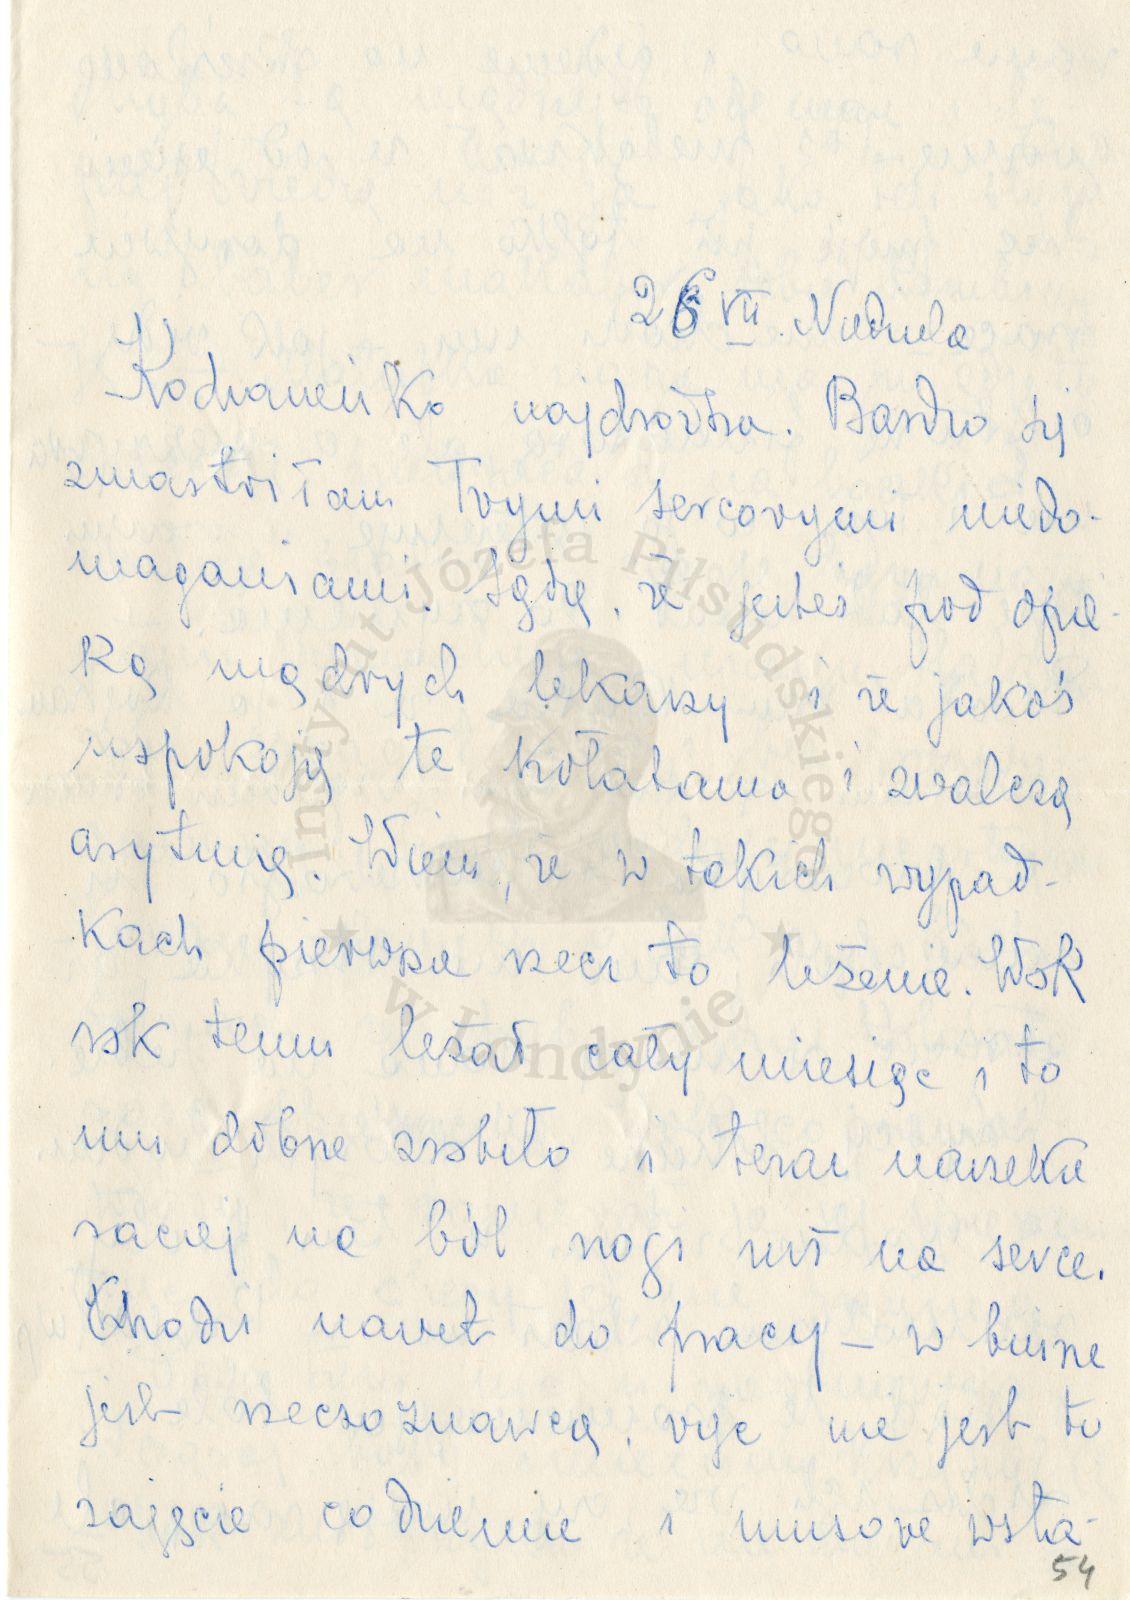 26 VII. Niedziela
Kochaneńko najdroższa. Bardzo się
zmartwiłam Twymi sercowymi niedo-
maganiami. Sądzę, że jesteś pod opie-
ką mądrych lekarzy i że jakoś
uspokoją te kołatania i zwalczą
arytmię. Wiem, że w takich wypad-
kach pierwsza rzecz to leżenie.
rok temu leżał cały miesiąc i to
mu dobrze zrobiło i teraz narzeka
raczej na ból nogi niż na serce.
Chodzi nawet do pracy – w biurze
jest rzeczoznawcą, więc nie jest to
zajęcie codzienne i musowe wsta-
54
Instytut Józefa Piłsudskiego
w Londynie